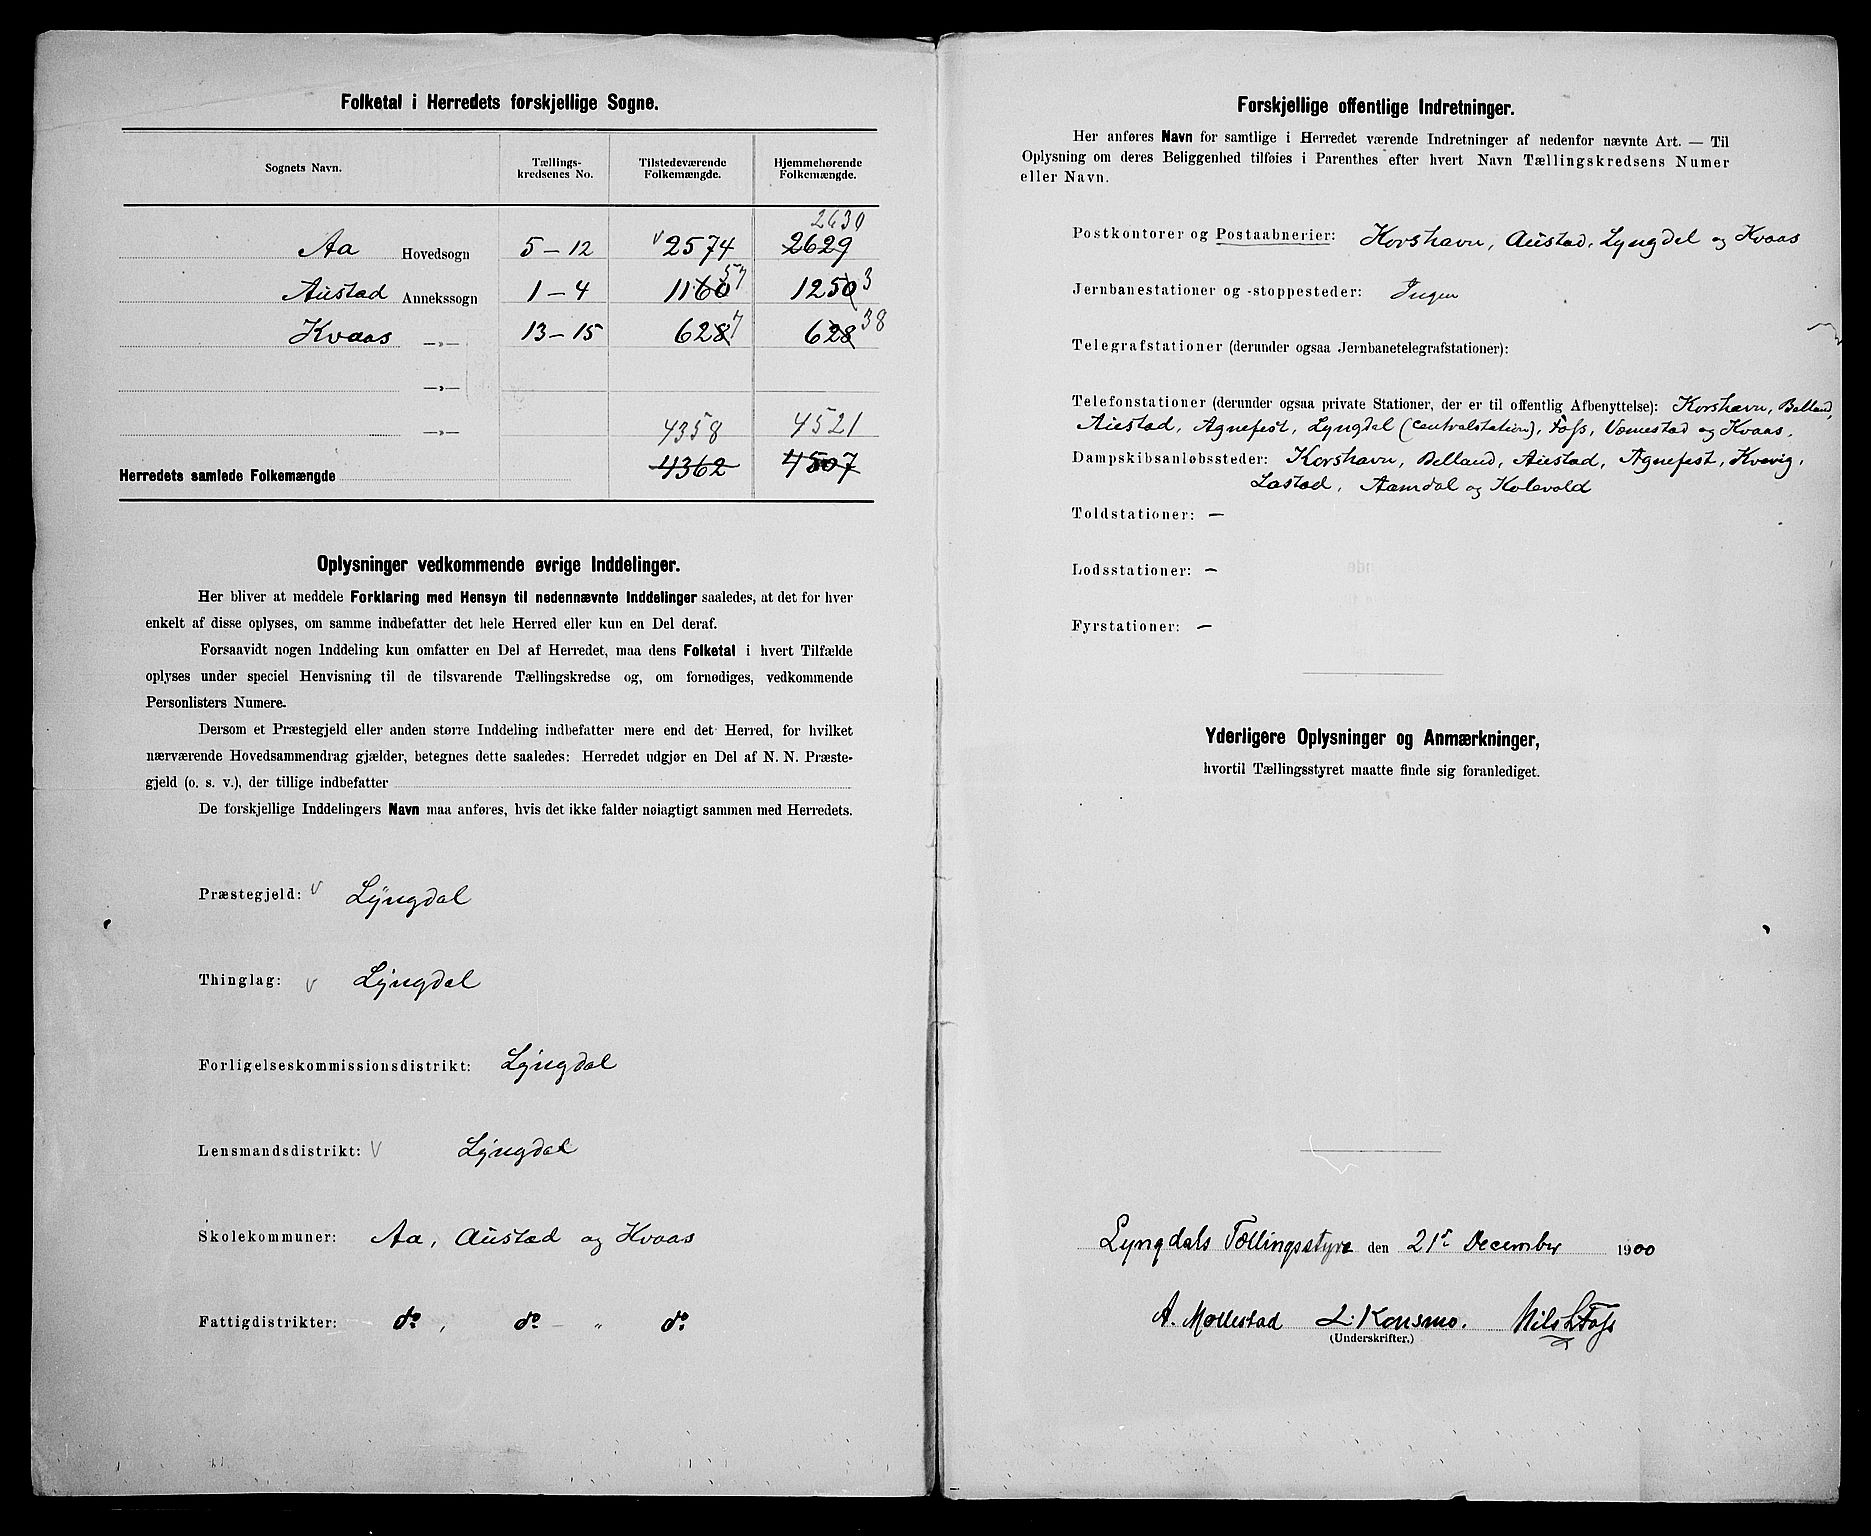 Folketal i Herredets forskjellige Sogne.
Sognets Navn. Tællings-kredsenes No. Tilstedeværende Folkemængde. Hjemmehørende Folkemængde.
2630
Aa Hovedsogn 5-12 v 2574 2629
Austad Annekssogn 1-4 1160 57 1250 3
Kvaas —„— 13-15 628 7 628 38
—„—
—„— 4358 4521
Herredets samlede Folkemængde 4362 4507
Oplysninger vedkommende øvrige Inddelinger.
Her bliver at meddele Forklaring med Hensyn til nedennævnte Inddelinger saaledes, at det for hver
enkelt af disse oplyses, om samme indbefatter det hele Herred eller kun en Del deraf.
Forsaavidt nogen Inddeling kun omfatter en Del af Herredet, maa dens Folketal i hvert Tilfælde
oplyses under speciel Henvisning til de tilsvarende Tællingskredse og, om fornødiges, vedkommende
Personlisters Numere.
Dersom et Præstegjeld eller anden større Inddeling indbefatter mere end det Herred, for hvilket
nærværende Hovedsammendrag gjælder, betegnes dette saaledes: Herredet udgjør en Del af N. N. Præste-
gjeld (o. s. v.), der tillige indbefatter
De forskjellige Inddelingers Navn maa anføres, hvis det ikke falder nøiagtigt sammen med Herredets.
Præstegjeld: v Lyngdal
Thinglag: v Lyngdal
Forligelseskommissionsdistrikt: Lyngdal
Lensmandsdistrikt: v Lyngdal
Skolekommuner: Aa, Austad og Kvaas
Fattigdistrikter: do, do - „ do
Forskjellige offentlige Indretninger.
Her anføres Navn for samtlige i Herredet værende Indretninger af nedenfor nævnte Art. — Til
Oplysning om deres Beliggenhed tilføies i Parenthes efter hvert Navn Tællingskredsens Numer
eller Navn.
Postkontorer og Postaabnerier: Korshavn, Austad, Lyngdal og Kvaas
Jernbanestationer og -stoppesteder: Ingen
Telegrafstationer (derunder ogsaa Jernbanetelegrafstationer):
Telefonstationer (derunder ogsaa private Stationer, der er til offentlig Afbenyttelse): Korshavn, Belland,
Austad, Agnefest, Lyngdal (centralstation), Foss, Vemestad og Kvaas.
Dampskibsanløbssteder: Korshavn, Belland, Austad, Agnefest, Kvavig,
Lastad, Aamdal og Kolevold
Toldstationer: —
Lodsstationer: —
Fyrstationer: —
Yderligere Oplysninger og Anmærkninger,
hvortil Tællingsstyret maatte finde sig foranlediget.
Lyngdals Tællingsstyre den 21r December 1900
A. Møllestad L. Konsmo. Nils L Foss
(Underskrifter.)